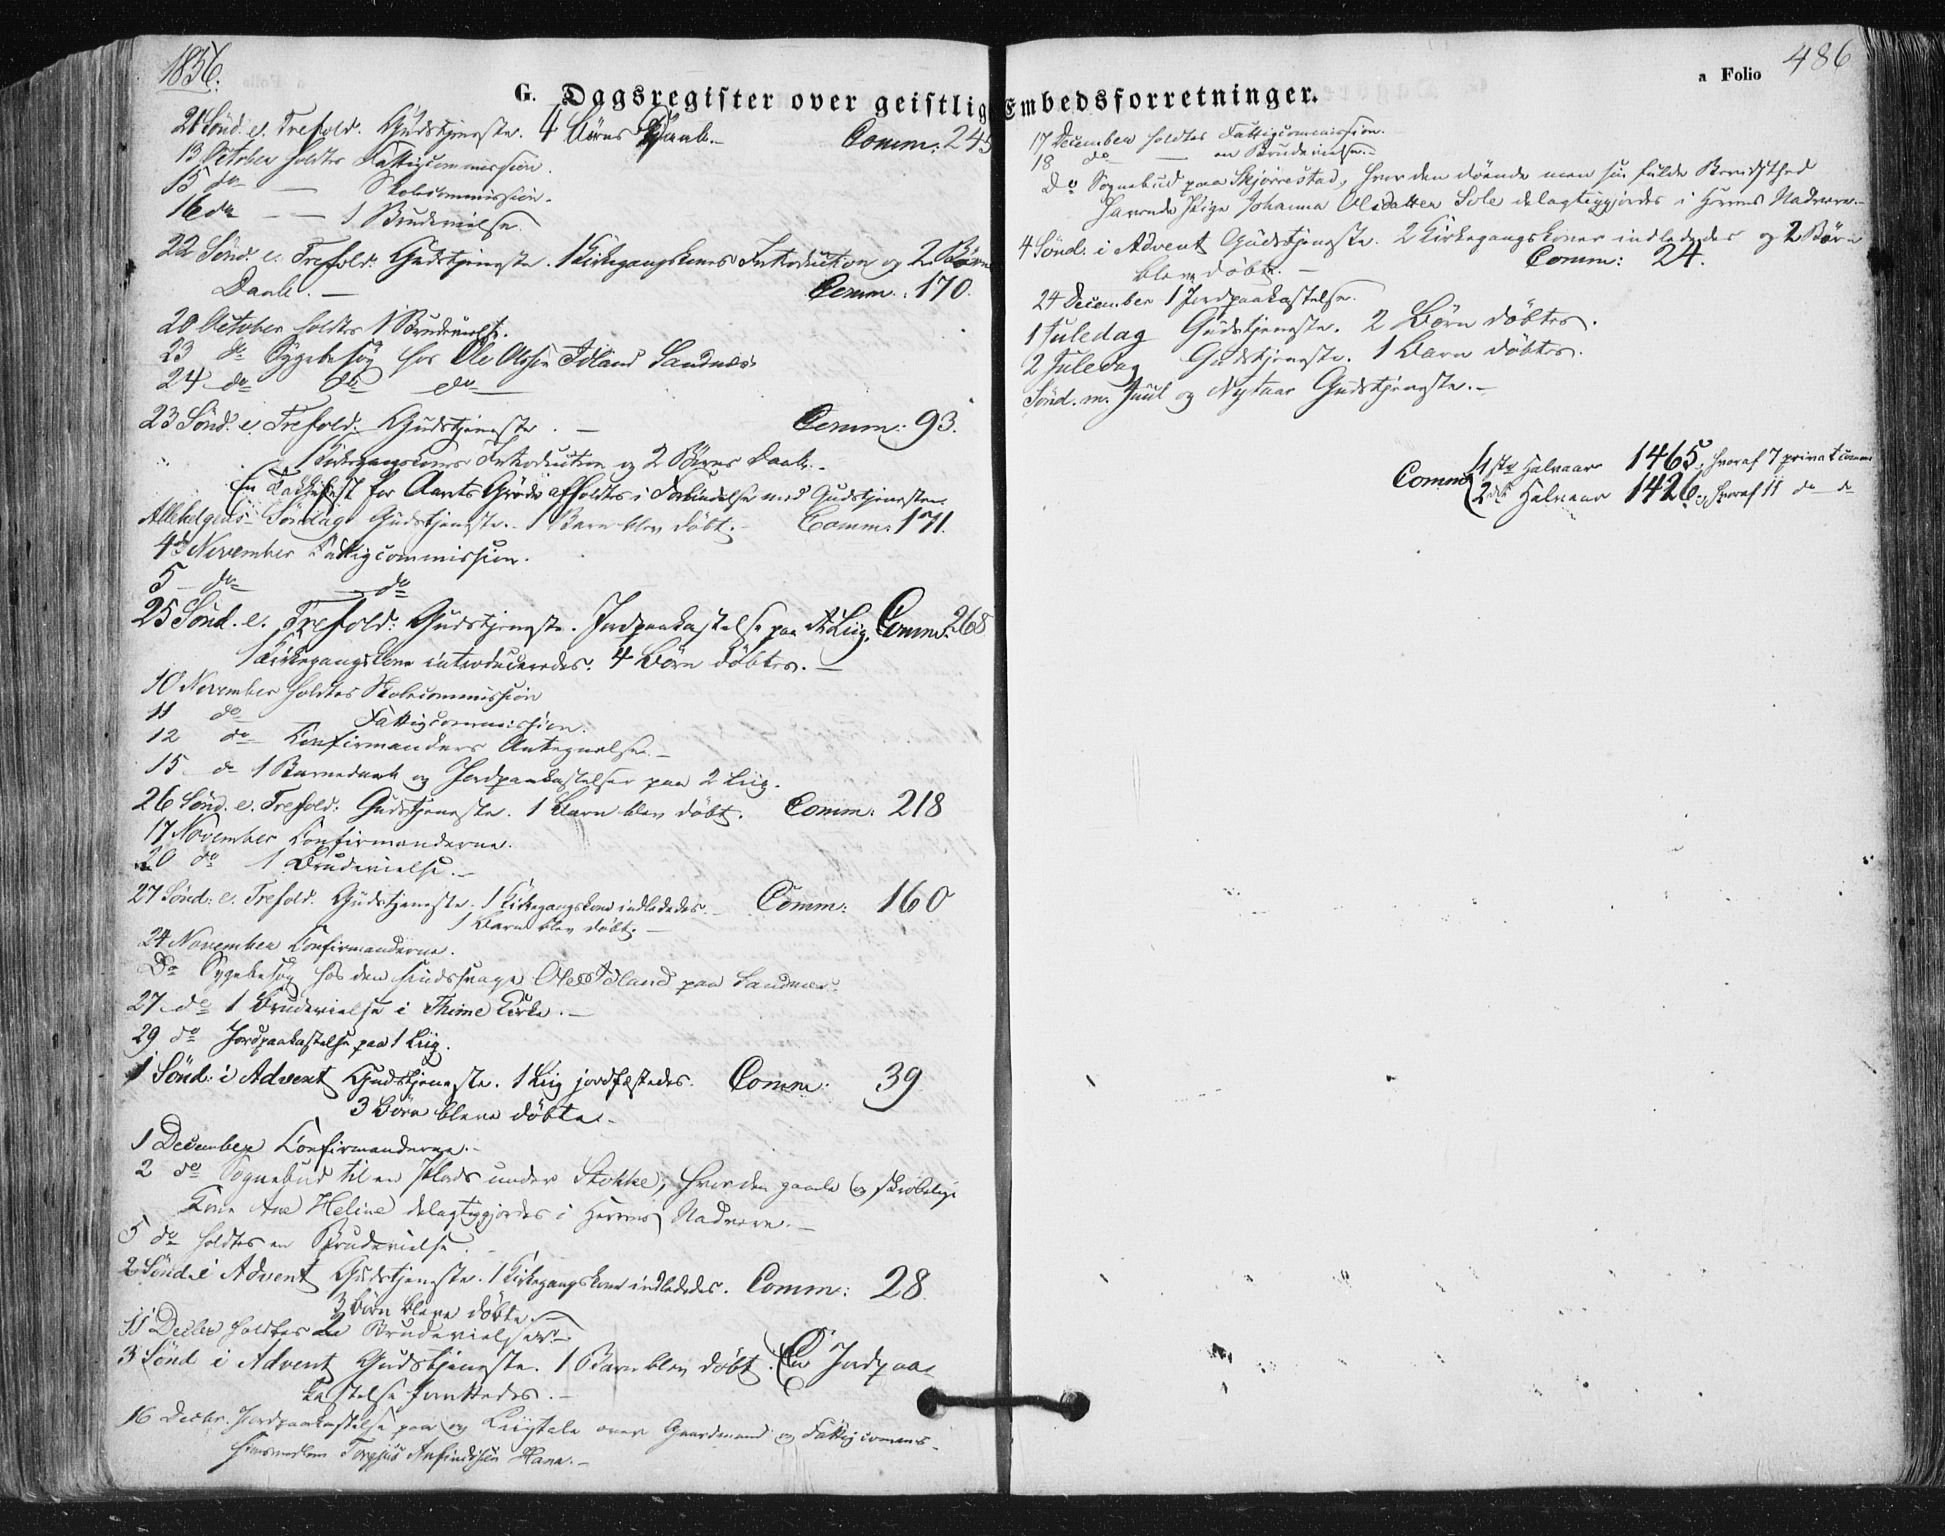 1856.
G. Dagsregister over geistlig Embedsforretninger.
21 Sönd. e. Trefold. Gudstjeneste. 4 Börns Daab.- Comm: 245
13 October holdtes Fattigcommission.
15 do — Skolecommission.
16 do — — 1 Brudevielse.
22 Sönd. e. Trefold: Gudstjeneste. 1 Kirkegangskones Introduction og 2 Börns
Daab. — Comm.: 170.
20 October holdtes 1 Brudevielse.
23 do Sygebesøg hos Ole Olssen Idland Sandnæs
24 do do do
23 Sönd. e. Trefold: Gudstjeneste. — Comm: 93.
1 Kirkegangskones Introduction og 2 Börns Daab.-
En Takkefest for Aarets Gröde afholdtes i Forbindelse med Gudstjenesten.
Allehelgens Söndag Gudstjeneste.- 1 Barn blev döbt.- Comm: 171.
4de November Fattigcommission.
5 - do — do
25 Sönd. e. Trefold: Gudstjeneste. Jordpaakastelse paa et Liig. Comm: 268
1 Kirkegangskone introduceredes. 4 Börn döbtes.—
10 November holdtes Skolecommission
11 do — Fattigcommission.
12 do Confirmanders Antegnelse.-
15 do 1 Barnedaab og Jordpaakastelser paa 2 Liig.
26 Sönd. e. Trefold: Gudstjeneste. 1 Barn blev döbt. Comm: 218
17 November Confirmanderne.
20 do 1 Brudevielse.-
27 Sönd: e. Trefold: Gudstjeneste. 1 Kirkegangskone indlededes.- Comm: 160
1 Barn blev döbt.—
24 November Confirmanderne.
Do Sygebesøg hos den sindssvage Ole Idland paa Sandnæs.
27 do 1 Brudevielse i Thime Kirke.—
29 do Jordpaakastelse paa 1 Liig.
1 Sönd: i Advent Gudstjeneste. 1 Liig jordfæstedes. Comm: 39
3 Börn bleve döbte.-
1 December Confirmanderne.-
2 do Sognebud til en Plads under Stokke, hvor den gamle og skröbelige
Kone Ane Heline delagtiggjordes i Herrens Nadvere.—
5 do holdtes en Brudevielse.
2 Sönd. i Advent Gudstjeneste. 1 Kirkegangskone indlededes. Comm: 28.
3 Börn bleve döbte.—
11 Decbr holdtes 2 Brudevielser.
3 Sönd i Advent Gudstjeneste. 1 Barn blev döbt. En Jordpaa-
kastelse forrettedes.—
16 Decbr. Jordpaakastelse paa og Liigtale over Gaardmand og Fattigcommis-
sionsmedlem Torgjus Anfindsen Hana.-
a Folio 486
17 December holdtes Fattigcommission.
18 do — en Brudevielse.-
Do Sognebud paa Skjörrestad, hvor den döende men sin fulde Bevidsthed
havende Pige Johanna Olsdatter Sole delagtiggjordes i Herrens Nadvere.-
4 Sönd: i Advent Gudstjeneste. 2 Kirkegangskoner indlededes og 2 Börn
bleve döbte.— Comm: 24.
24 December 1 Jordpaakastelse.
1 Juledag Gudstjeneste. 2 Börn döbtes.
2 Juledag Gudstjeneste. 1 Barn döbtes.
Sönd. m. Juul og Nytaar Gudstjeneste.—
Comm: 1ste Halvaar 1465, hvoraf 7 privat comm
2det Halvaar 1426., hvoraf 11 do do